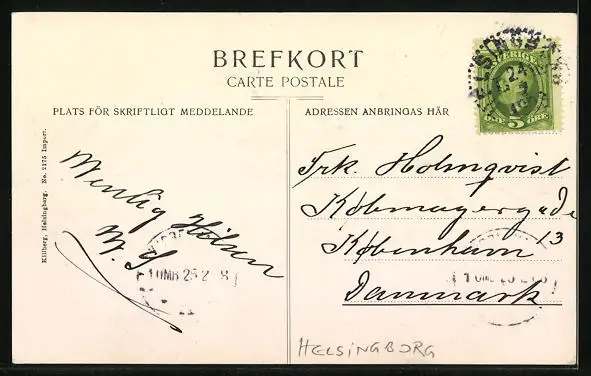 BREFKORT
CARTE POSTALE
PLATS FÖR SKRIFTLIGT MEDDELANDE
ADRESSEN ANBRINGAS HÄR
Killberg, Helsingborg. No. 2175 Import.
Venlig Hilsen
M. S
SVERIGE
5
ÖRE
HELSINGB
24
Frk. Holmqvist
Købmagergade
13
København
Danmark.
1 OMB 25 2
HELSINGBORG